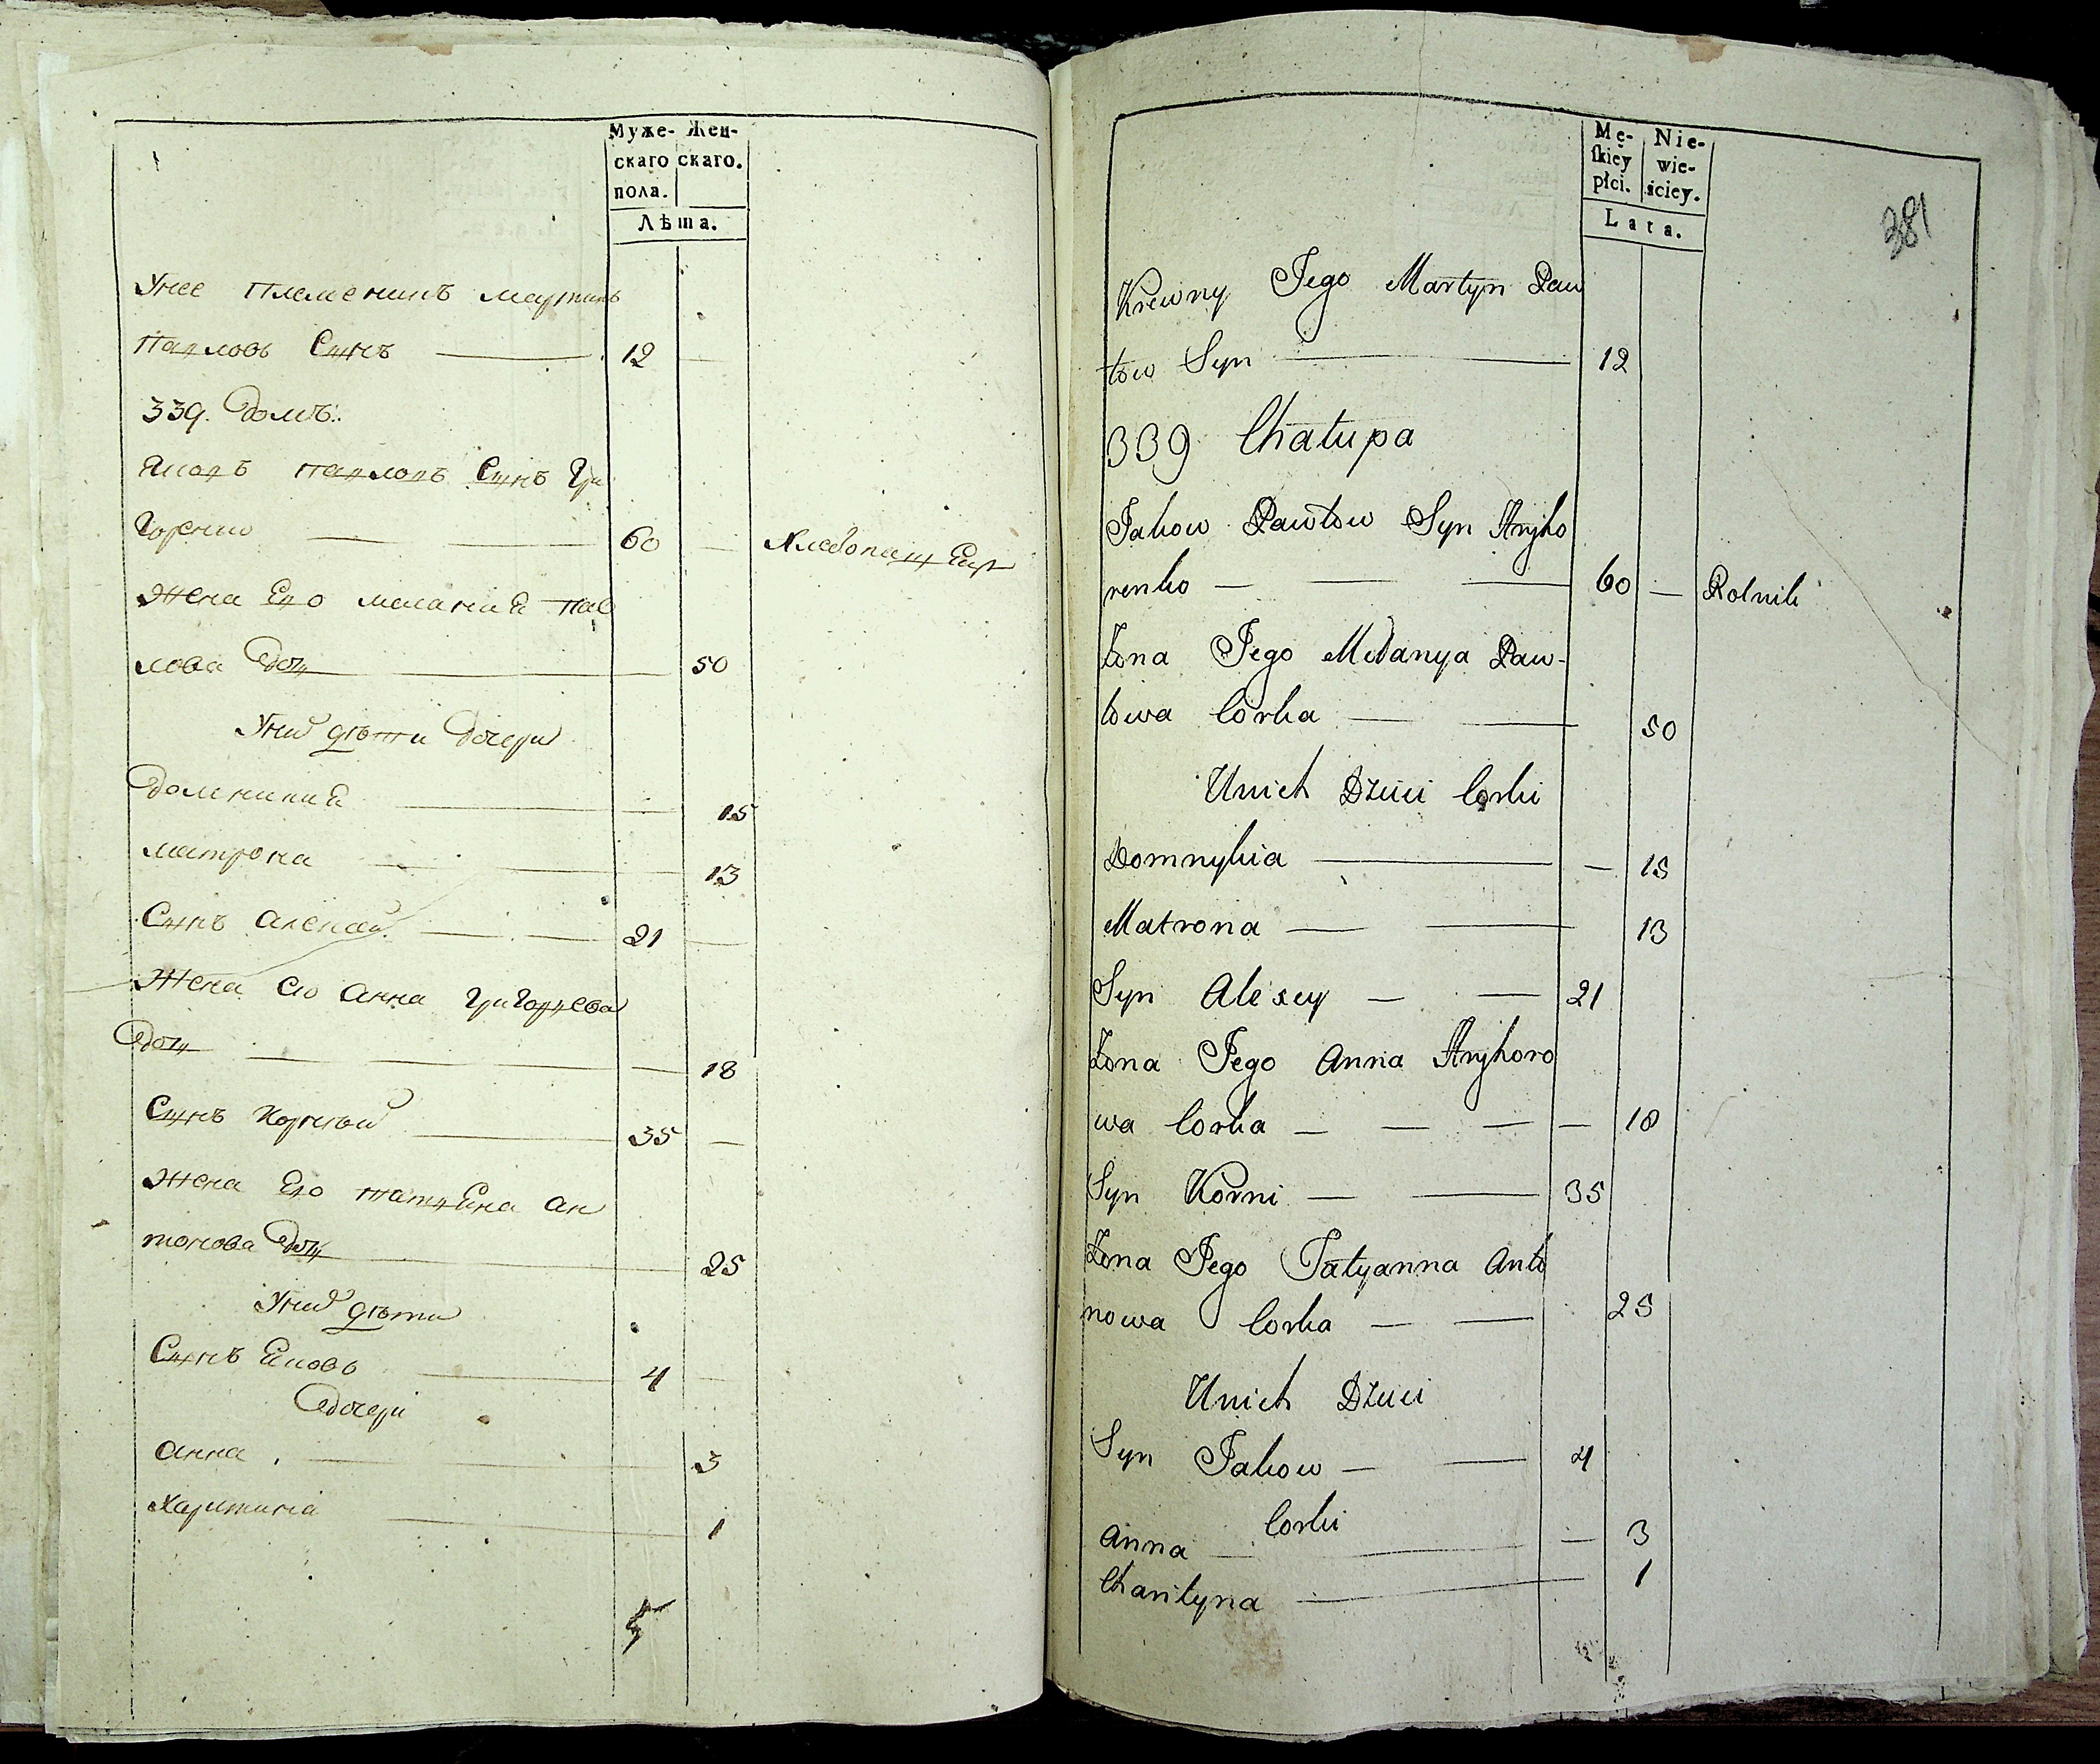 Муже- Жен-
скаго скаго.
пола.
Лѣта.
Унее племеникъ мартинъ
павловъ Сынъ 12
339. домъ:
Яковъ павловъ Сынъ Гри
горенко 60 Хлебопашец
Жена Его маланиЯ пав
лова дочь 50
Уних дѣти дочери
доминикиЯ 15
матрона 13
Сынъ алексей 21
Жена его анна григорьева
дочь 18
Сынъ Корней 35
Жена Его татЬяна ан
тонова дочь 25
Уних дѣти
Сынъ Яковъ 4
дочери
анна 3
Харитиния 1
5
Mę- Nie-
skiey wie-
płci. ściey.
Lata.
381
Krewny Jego Martyn Paw
łow Syn 12
339 Chałupa
Jakow Pawłow Syn Hryho
renko 60 Rolnik
Żona Jego Mełanya Paw-
łowa Corka 50
Unich Dzieci Corki
Domnykia 15
Matrona 13
Syn Alexey 21
Żona Jego Anna Hryhoro
wa Corka 18
Syn Korni 35
Żona Jego Tatyanna Anto
nowa Corka 25
Unich Dzieci
Syn Jakow 4
Corki
Anna 3
Charityna 1